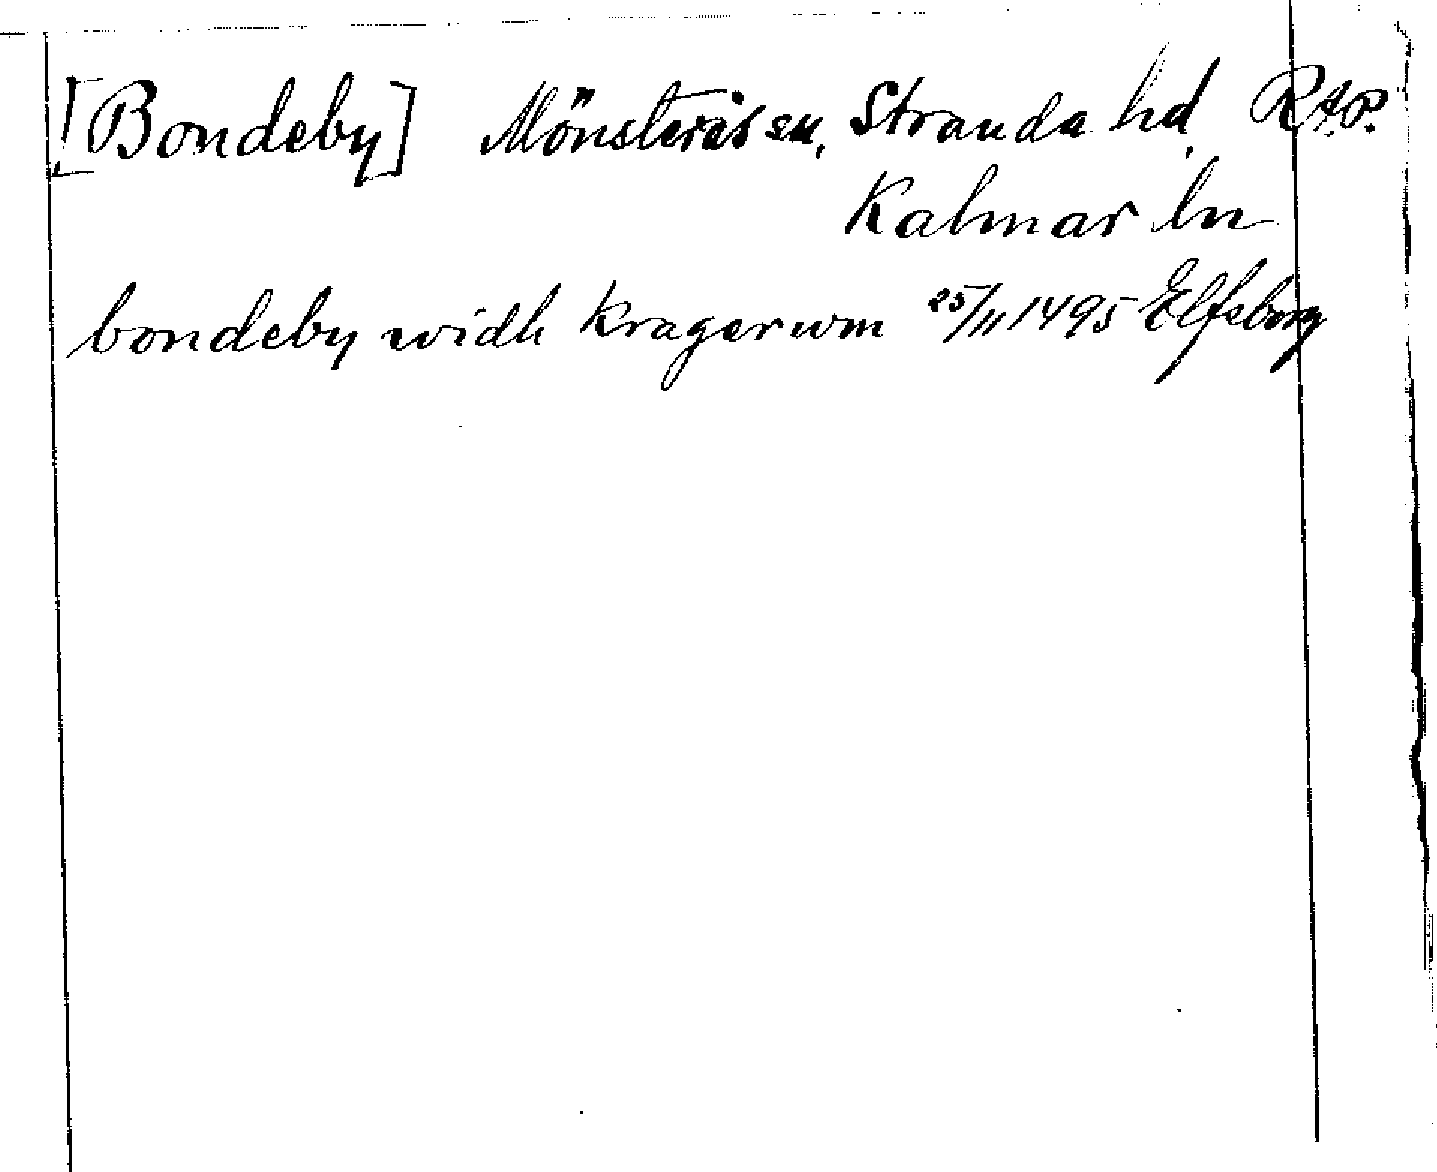 [Bondeby] Mönsterås sn, Stranda hd, RAP.
Kalmar ln
bondeby widh kragerwm 25/11 1495 Elfsborg